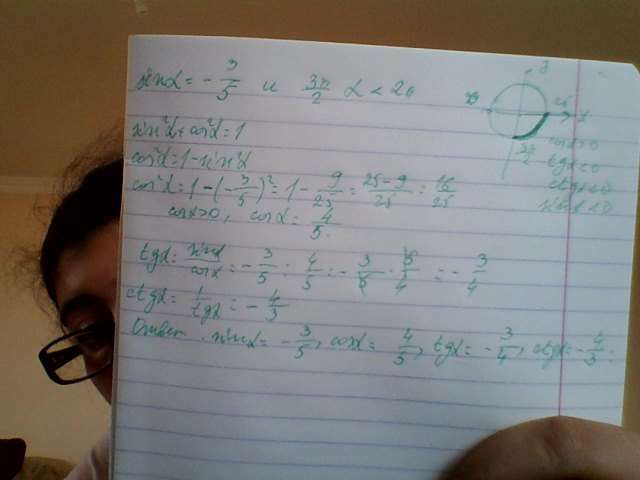 sinα = -3/5 и 3π/2 α < 2π
sin²α + cos²α = 1
cos²α = 1 - sin²α
cos²α = 1 - (-3/5)² = 1 - 9/25 = (25-9)/25 = 16/25
cosα > 0, cosα = 4/5.
tgα = sinα/cosα = -3/5 : 4/5 = -3/5 · 5/4 = -3/4
ctgα = 1/tgα = -4/3
Ответ. sinα = -3/5, cosα = 4/5, tgα = -3/4, ctgα = -4/3.
y
2π x
3π/2
cosα > 0
tgα < 0
ctgα < 0
sinα < 0